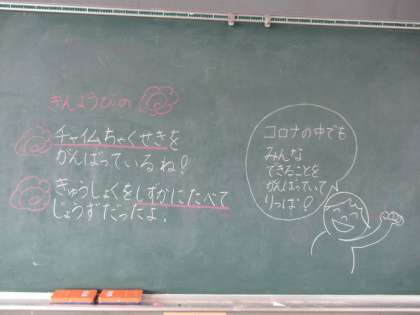 きんようびの
チャイムちゃくせきを
がんばっているね！
きゅうしょくをしずかにたべて
じょうずだったよ。
コロナの中でも
みんな
できることを
がんばっていて
りっぱ！